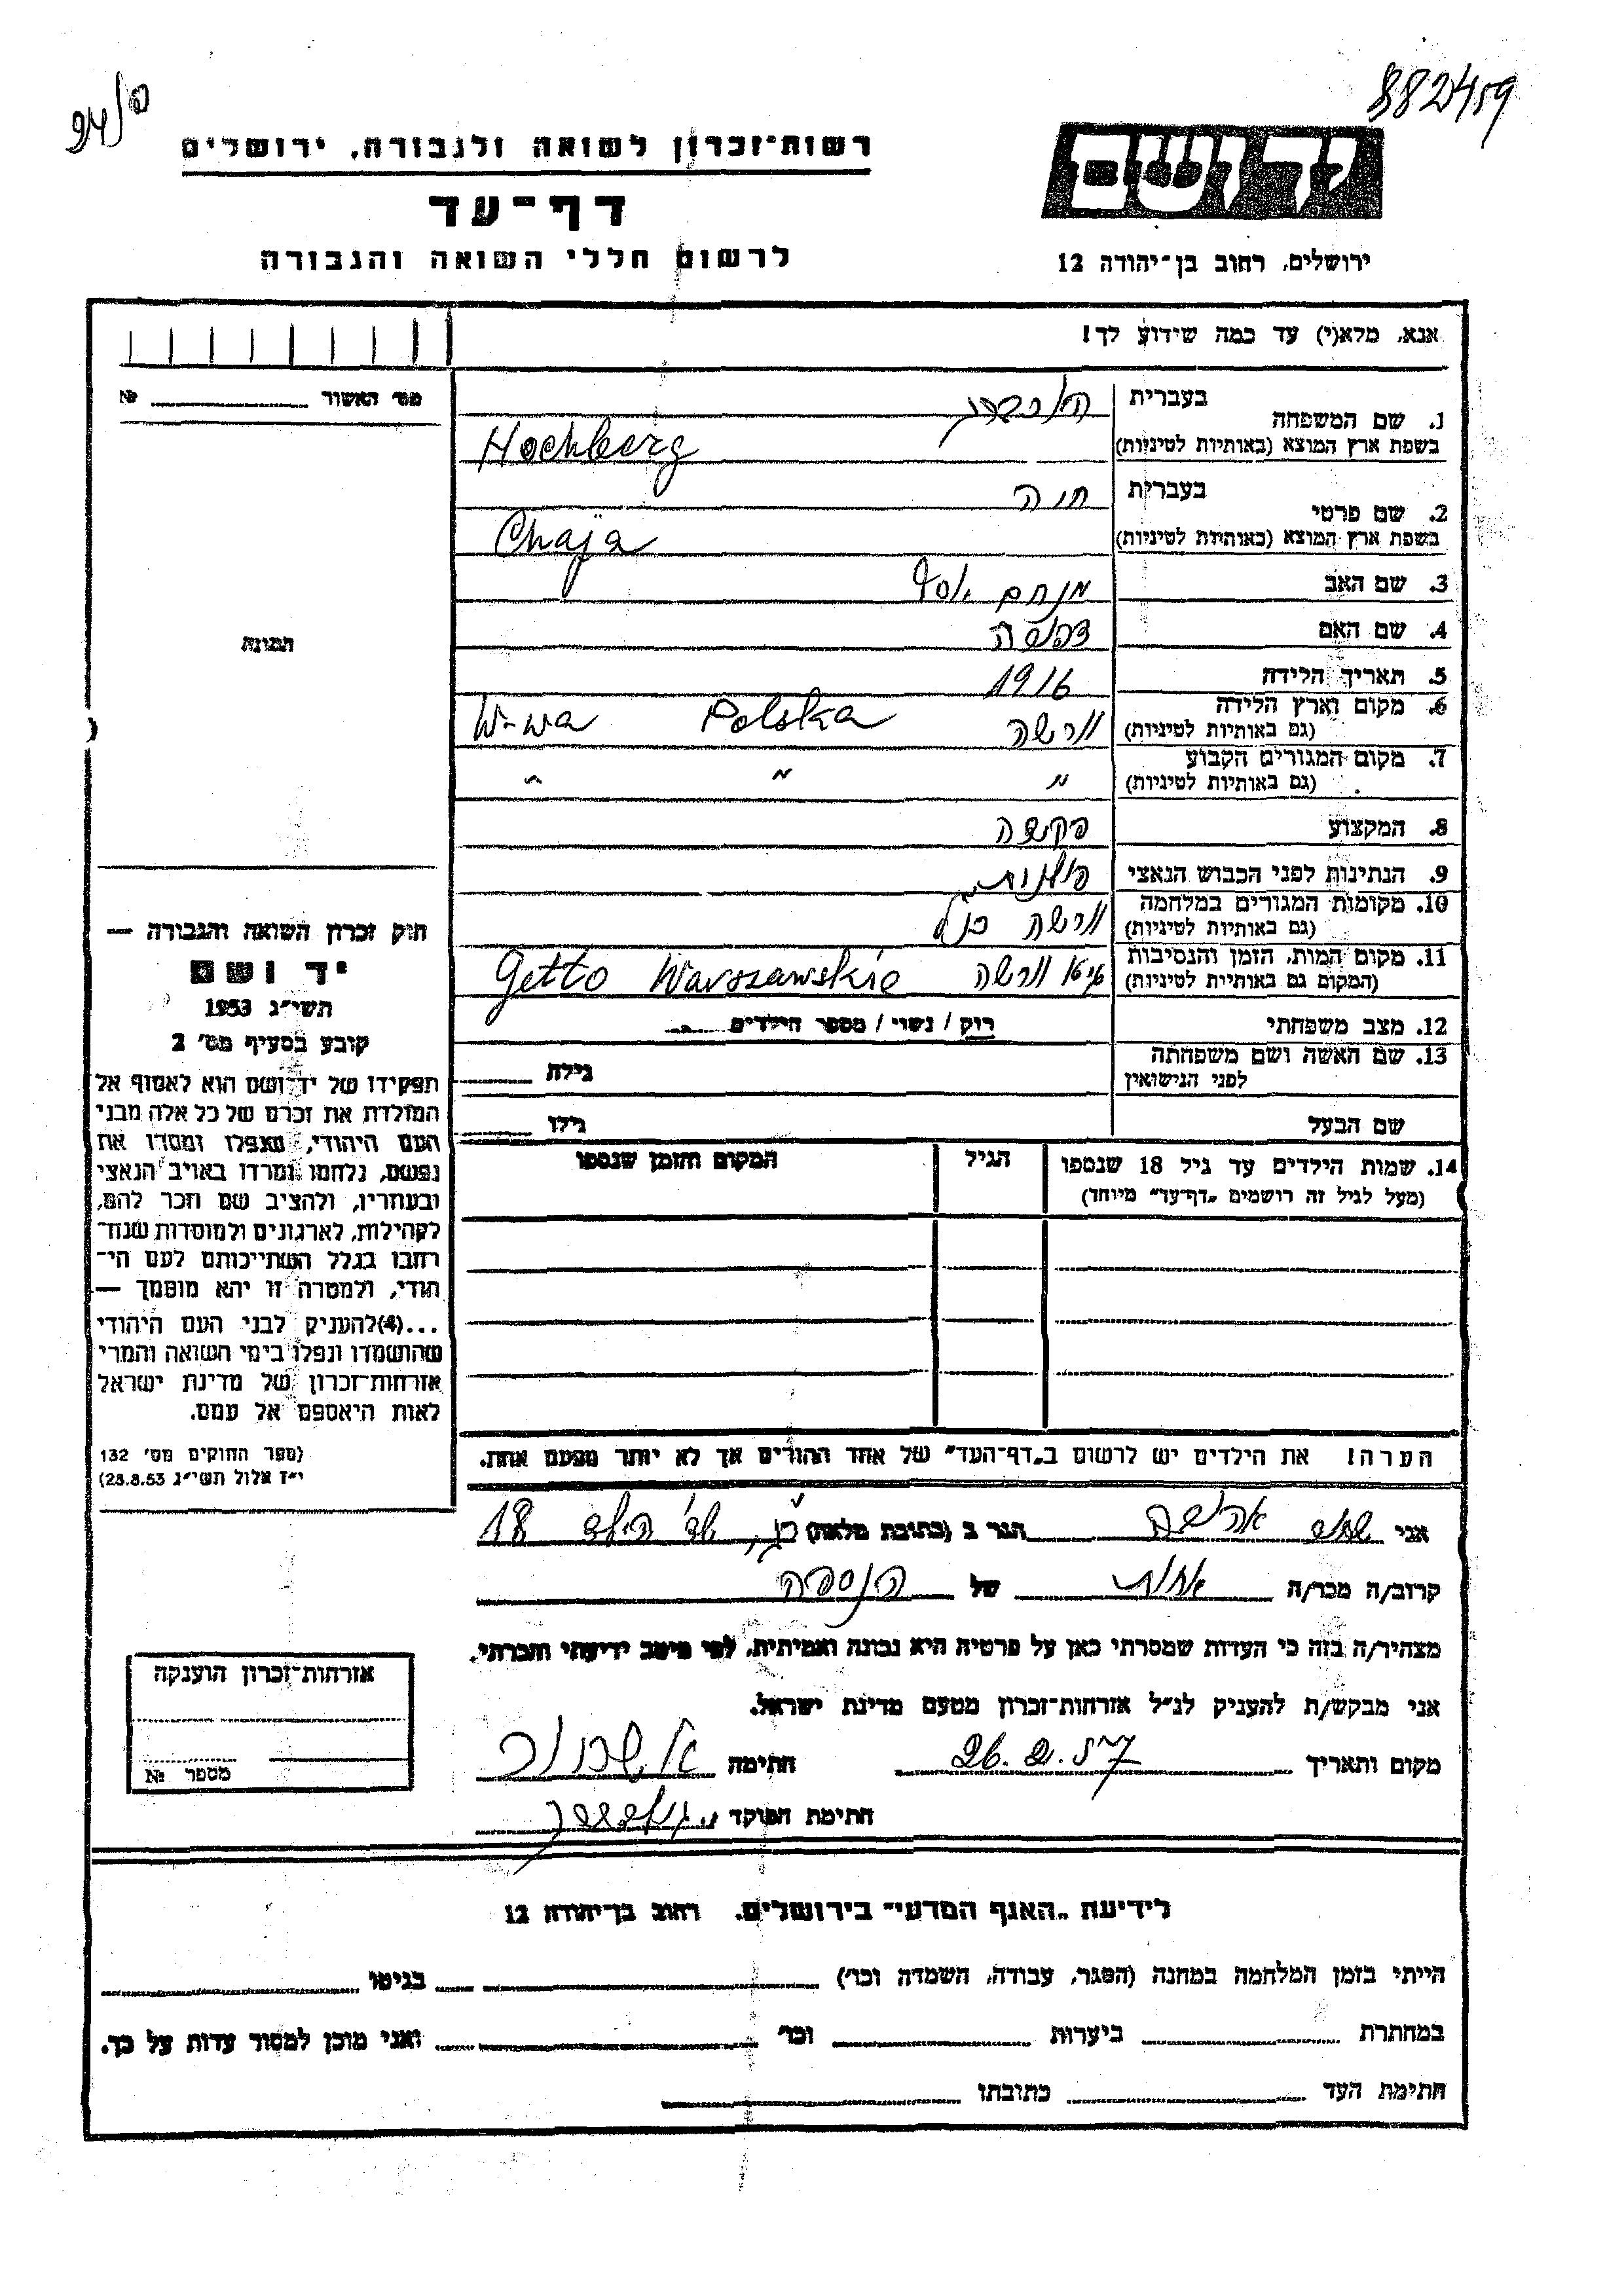 882459
94/פ
יד ושם
רשות־זכרון לשואה ולגבורה, ירושלים
דף־עד
ירושלים, רחוב בן־יהודה 12
לרשום חללי השואה והגבורה
אנא, מלא(י) עד כמה שידוע לך!
מס׳ האשור № 
1. שם המשפחה בעברית הוכברג
בשפת ארץ המוצא (באותיות לטיניות) Hochberg
2. שם פרטי בעברית חיה
בשפת ארץ המוצא (באותיות לטיניות) Chaja
3. שם האב מנחם יוסף
4. שם האם
5. תאריך הלידה 1916
6. מקום וארץ הלידה (גם באותיות לטיניות) ורשה Polska W-wa
7. מקום המגורים הקבוע (גם באותיות לטיניות) " " "
8. המקצוע
9. הנתינות לפני הכבוש הנאצי פולנית
10. מקומות המגורים במלחמה (גם באותיות לטיניות) ורשה כנ"ל
11. מקום המות, הזמן והנסיבות (המקום גם באותיות לטיניות) גיטו ורשה Getto Warszawskie
12. מצב משפחתי רוק / נשוי / מספר הילדים
13. שם האשה ושם משפחתה לפני הנישואין גילה
שם הבעל גילו
14. שמות הילדים עד גיל 18 שנספו הגיל המקום והזמן שנספו
(מעל לגיל זה רושמים „דף־עד" מיוחד)
הערה! את הילדים יש לרשום ב„דף־העד" של אחד ההורים אך לא יותר מפעם אחת.
תמונה
חוק זכרון השואה והגבורה —
יד ושם
תשי״ג 1953
קובע בסעיף מס׳ 2
תפקידו של יד־ושם הוא לאסוף אל
המולדת את זכרם של כל אלה מבני
העם היהודי, שנפלו ומסרו את
נפשם, נלחמו ומרדו באויב הנאצי
ובעוזריו, ולהציב שם וזכר להם,
לקהילות, לארגונים ולמוסדות שנח־
רבו בגלל השתייכותם לעם הי־
הודי, ולמטרה זו יהא מוסמך —
...(4)להעניק לבני העם היהודי
שהושמדו ונפלו בימי השואה והמרי
אזרחות־זכרון של מדינת ישראל
לאות היאספם אל עמם.
(ספר החוקים מס׳ 132
י״ז אלול תשי״ג 28.8.53)
אני הגר ב (כתובת מלאה) 18
קרוב/ה מכר/ה אחות של הנספה
מצהיר/ה בזה כי העדות שמסרתי כאן על פרטיה היא נכונה ואמיתית, לפי מיטב ידיעתי והכרתי.
אני מבקש/ת להעניק לנ״ל אזרחות־זכרון מטעם מדינת ישראל.
מקום ותאריך 26.2.57 חתימה
חתימת הפוקד
אזרחות־זכרון הוענקה
מספר №
לידיעת „האגף המדעי" בירושלים, רחוב בן־יהודה 12
הייתי בזמן המלחמה במחנה (הסגר, עבודה, השמדה וכו׳) בגיטו
במחתרת ביערות וכו׳ ואני מוכן למסור עדות על כך.
חתימת העד כתובתו